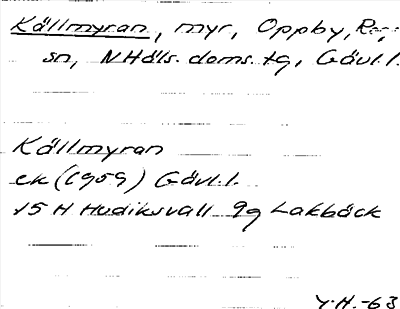 Källmyran, myr, Oppby,
sn, NHäls. doms. tg, Gävl.l.
Källmyran
ek (1959) Gävl.l.
15 H Hudiksvall 9g Lakbäck
Y.H.-63